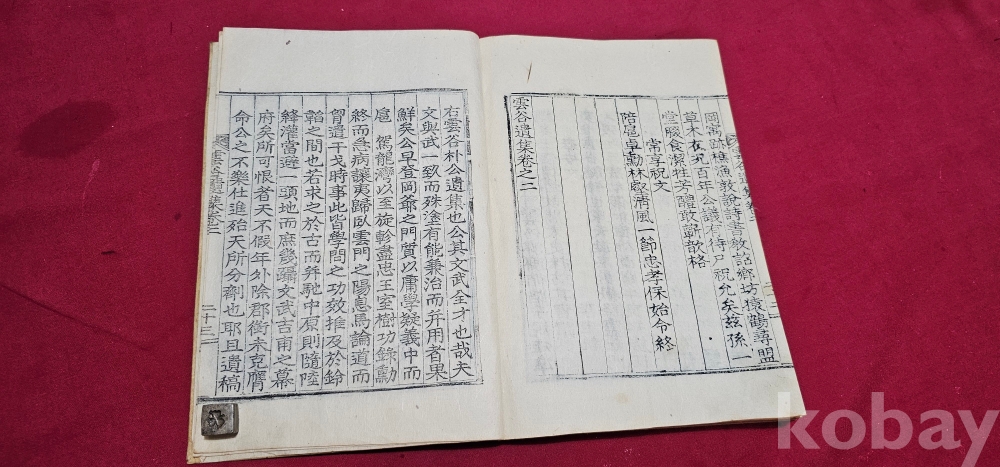 岡寓跡樵漁敦說詩書敎詔鄉坊猿鶴尋盟
草木在況百年公議有待尸祝允矣茲孫一
堂腶食潔牲芳醴敢蘄歆格
常享祝文
陪扈卓勳林壑淸風一節忠孝保始令終
雲谷遺集卷之二
右雲谷朴公遺集也公其文武全才也哉夫
文與武一致而殊塗有能兼治而并用者果
鮮矣公早登岡爺之門質以庸學疑義中而
扈駕龍灣以至旋軫盡忠王室樹功錄勳
終而急病讓夷歸臥雲門之陽息馬論道而
胥遺干戈時事此皆學問之功效推及於鈴
韜之間也若求之於古而并馳中原則隨陸
絳灌當避一頭地而庶幾躡文武吉甫之幕
府矣所可恨者天不假年外除郡衡未克膺
命公之不樂仕進殆天所分劑也耶且遺稿
雲谷遺集卷二
二十三
kobay